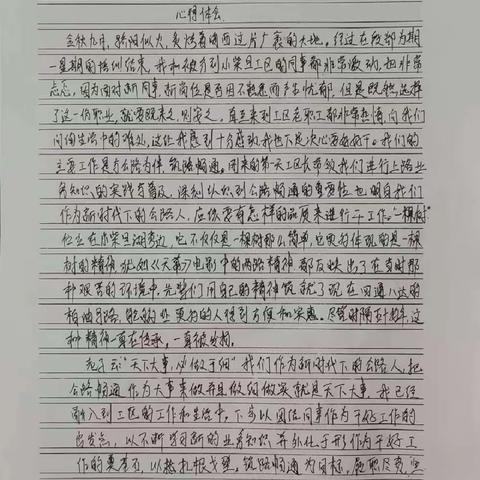 心得体会
金秋九月，骄阳似火，炙烤着湖西这片广袤的大地。经过在段部为期
一星期的培训结束，我和被分到小柴旦工区的同事都非常激动，也非常
忐忑，因为面对新同事、新岗位是否因不熟悉而产生忧郁，但是既然选择
了这一份职业，就要既来之，则安之，直至来到工区老职工都非常热情，向我们
问询生活中的难处，这让我感到十分感动我也下定决心要好好干。我们的
主要工作是养公路为伴，筑路畅通。刚来的第一天工区长带领我们进行上路业
务知识的实践与普及，深刻认识到公路畅通的重要性，也明白我们
作为新时代下的公路人，应该要有怎样的品质来进行工作。"一棵树"
位立在小柴旦湖旁边，它不仅仅是一棵树那么简单，它更多体现的是一棵
树的精神，犹如《天慕》电影中的两路精神都反映出了在当时那
种艰苦的环境中，先辈们用自己的精神筑就了现在四通八达的
柏油马路，能够让更多的人得到方便和实惠。尽管时隔五十载年，这
种精神一直在传承，一直被发扬。
老子云："天下大事，必做于细"我们作为新时代下的公路人，把
公路畅通作为大事来做并且做细做实就是天下大事，我已经
融入到工区的工作和生活中，下步以团结同事作为干好工作的
出发点，以不断学习新的业务知识，并外化于形作为干好工
作的奠基石，以扎根戈壁，筑路畅通为目标，履职尽责，